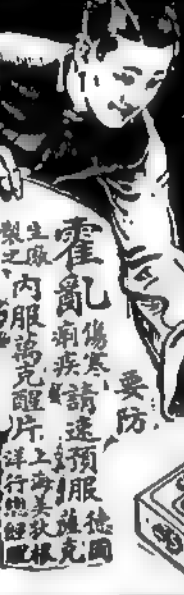 要防
霍亂
傷寒
痢疾
請速預服
德國
薩克
生廠
製之
內服萬克醒片
上海美狄根
洋行總經理